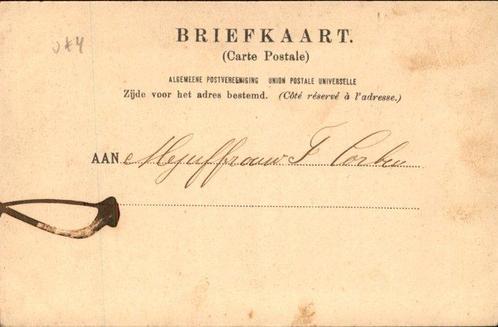 BRIEFKAART.
(Carte Postale)
ALGEMEENE POSTVEREENIGING UNION POSTALE UNIVERSELLE
Zijde voor het adres bestemd. (Côté réservé à l'adresse.)
AAN Mejuffrouw F